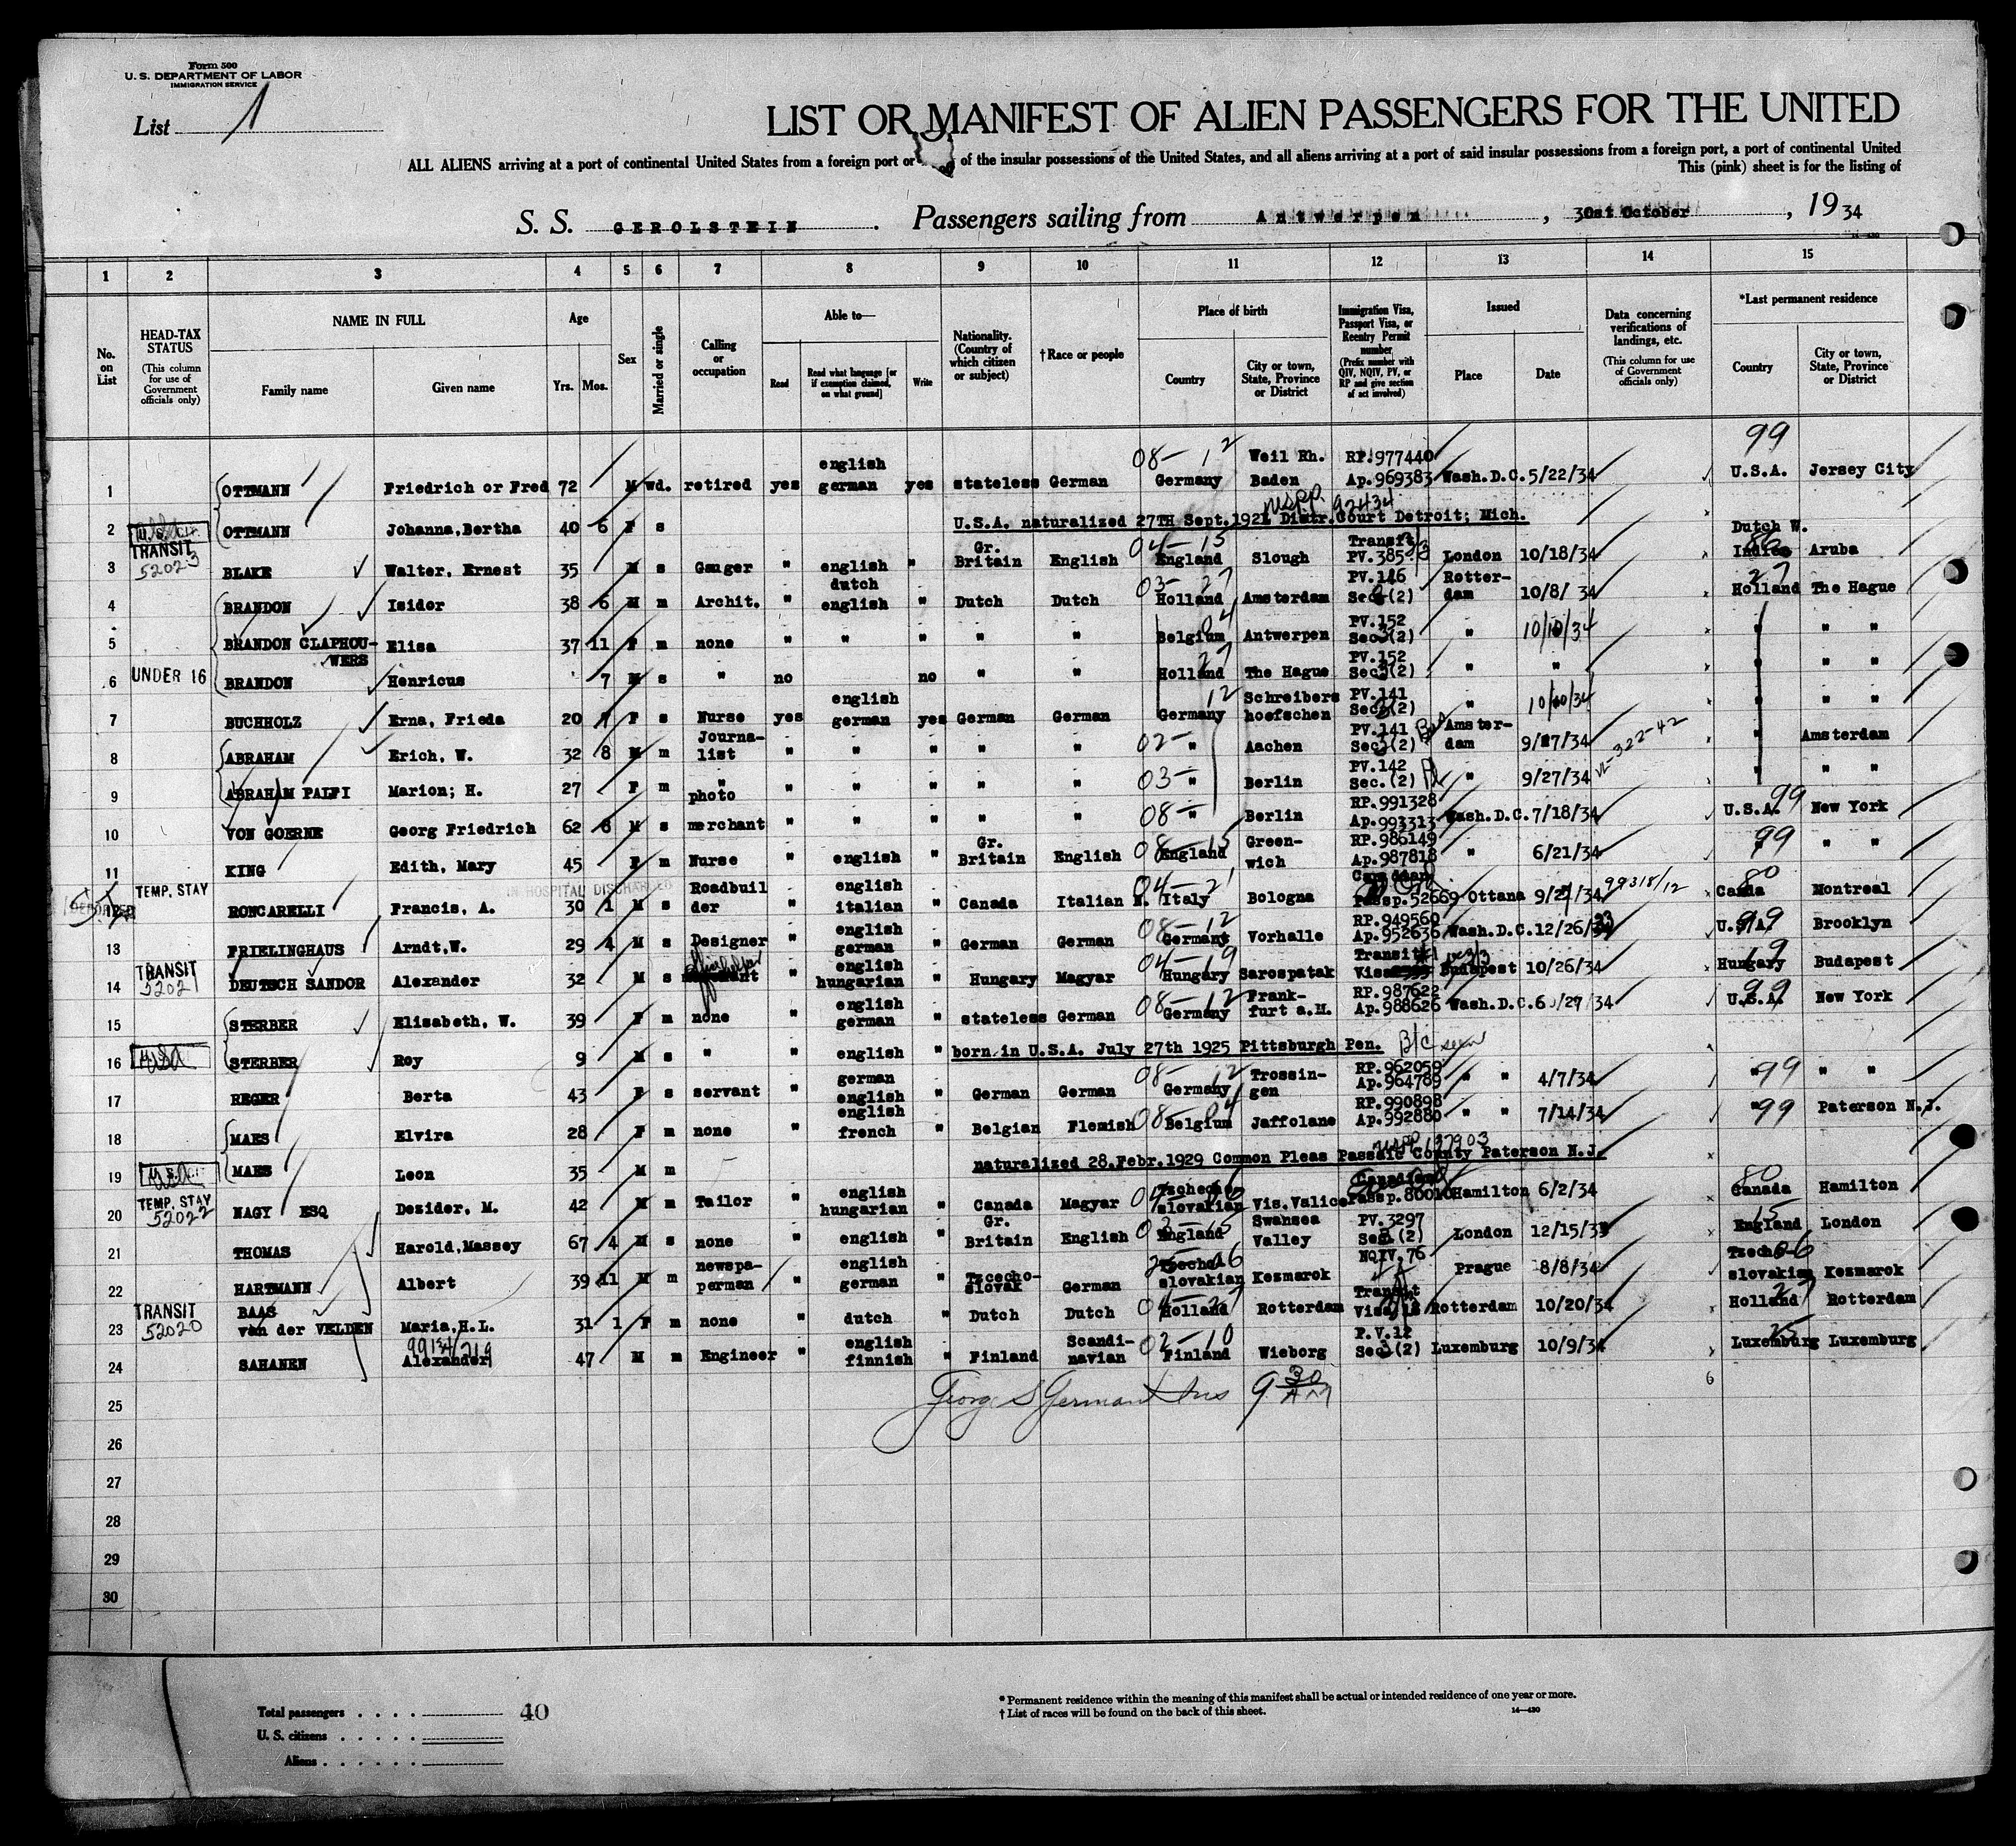 Form 500
U. S. DEPARTMENT OF LABOR
IMMIGRATION SERVICE
List 1
LIST OR MANIFEST OF ALIEN PASSENGERS FOR THE UNITED
ALL ALIENS arriving at a port of continental United States from a foreign port or of the insular possessions of the United States, and all aliens arriving at a port of said insular possessions from a foreign port, a port of continental United
This (pink) sheet is for the listing of
S. S. GEROLSTEIN. Passengers sailing from Antwerpen, October, 19 34
1 2 3 4 5 6 7 8 9 10 11 12 13 14 15
No. on List
HEAD-TAX STATUS (This column for use of Government officials only)
NAME IN FULL
Family name Given name
Age Yrs. Mos.
Sex
Married or single
Calling or occupation
Able to— Read Read what language [or if exemption claimed, on what ground] Write
Nationality. (Country of which citizen or subject)
†Race or people
Place of birth Country City or town, State, Province or District
Immigration Visa, Passport Visa, or Reentry Permit number (Prefix number with QIV, NQIV, PV, or RP and give section of act involved)
Issued Place Date
Data concerning verifications of landings, etc. (This column for use of Government officials only)
*Last permanent residence Country City or town, State, Province or District
1 OTTMANN Friedrich or Fred 72 M wd. retired yes english german yes stateless German 08-12 Germany Weil Rh. Baden RP.977440 Ap.969383 Wash.D.C. 5/22/34 99 U.S.A. Jersey City
2 OTTMANN Johanna,Bertha 40 6 F s U.S.A. naturalized 27TH Sept.1921 Distr.Court Detroit; Mich. USPP 92434
3 TRANSIT 52023 BLAKE Walter, Ernest 35 M s Gauger " english " Gr. Britain English 04-15 England Slough Transit PV.385 London 10/18/34 Dutch W. Indies Aruba
4 BRANDON Isidor 38 6 M m Archit. " dutch english " Dutch Dutch 03-27 Holland Amsterdam PV.146 Sec3(2) Rotterdam 10/8/34 27 Holland The Hague
5 BRANDON CLAPHOU-WERS Elisa 37 11 F m none " " " " " 04 Belgium Antwerpen PV.152 Sec3(2) " 10/10/34 " " "
6 UNDER 16 BRANDON Henricus 7 M s " no no " " 27 Holland The Hague PV.152 Sec3(2) " " " " "
7 BUCHHOLZ Erna, Frieda 20 7 F s Nurse yes english german yes German German 12 Germany Schreibershoefschen PV.141 Sec3(2) " 10/10/34 " " "
8 ABRAHAM Erich, W. 32 8 M m Journalist " " " " " 02- " Aachen PV.141 Sec3(2) Amsterdam 9/27/34 VL-322-42 " Amsterdam
9 ABRAHAM PALFI Marion; H. 27 F m " photo " " " " " 03- " Berlin PV.142 Sec.(2) " 9/27/34 " " "
10 VON GOERNE Georg Friedrich 62 6 M s merchant " " " " " 08- " Berlin RP.991328 Ap.993313 Wash.D.C. 7/18/34 U.S.A. 99 New York
11 KING Edith, Mary 45 F m Nurse " english " Gr. Britain English 08-15 England Greenwich RP.986149 Ap.987818 " 6/21/34 99 " "
12 TEMP. STAY RONCARELLI Francis, A. 30 1 M s Roadbuilder IN HOSPITAL DISCHARGED " english italian " Canada Italian N. 04-21 Italy Bologna Canadian Passp.52669 Ottana 9/21/34 99318/12 80 Canda Montreal
13 FRIELINGHAUS Arndt,W. 29 4 M s Designer " english german " German German 08-12 Germany Vorhalle RP.949560 Ap.952636 Wash.D.C. 12/26/33 U.S.A. 99 Brooklyn
14 TRANSIT 52021 DEUTSCH SANDOR Alexander 32 M s " english hungarian " Hungary Magyar 04-19 Hungary Sarospatak Transit Visa Budapest 10/26/34 19 Hungary Budapest
15 STERBER Elisabeth, W. 39 F m none " english german " stateless German 08-12 Germany Frankfurt a.M. RP.987622 Ap.988626 Wash.D.C. 6/27/34 99 U.S.A. New York
16 STERBER Roy 9 M s " " english " born in U.S.A. July 27th 1925 Pittsburgh Pen. B/C seen
17 REGER Berta 43 F s servant " german english " German German 08-12 Germany Trossingen RP.962059 Ap.964789 " " 4/7/34 " 99 " "
18 MAES Elvira 28 F m none " english french " Belgian Flemish 08-04 Belgium Jaffolane RP.990898 Ap.992880 " " 7/14/34 " 99 Paterson N.J.
19 MAES Leon 35 M m naturalized 28.Febr.1929 Common Pleas Passaic County Paterson N.J. USPP 137903
20 TEMP. STAY 52022 NAGY ESQ Dezider, M. 42 M m Tailor " english hungarian " Canada Magyar Tschecho-slovakian Vis.Valice Canadian Passp.80010 Hamilton 6/2/34 80 Canada Hamilton
21 THOMAS Harold,Massey 67 4 M s none " english " Gr. Britain English 03-15 England Swansea Valley PV.3297 Sec.(2) London 12/15/33 15 England London
22 HARTMANN Albert 39 11 M m newspaperman " english german " Tzcecho-slovak German Tzecho-slovakian Kesmarok NQIV.76 Prague 8/8/34 Tzecho-slovakian Kesmarok
23 TRANSIT 52020 BAAS van der VELDEN Maria,H.L. 31 1 F m none " dutch " Dutch Dutch 04-27 Holland Rotterdam Transit Visa Rotterdam 10/20/34 Holland 27 Rotterdam
24 SAHANEN Alexander 99134/219 47 M m Engineer " english finnish " Finland Scandinavian 02-10 Finland Wieborg P.V.12 Sec3(2) Luxemburg 10/9/34 25 Luxemburg Luxemburg
25 Georg S German Ins 9 30 AM 6
26
27
28
29
30
Total passengers . . . . 40
U. S. citizens . . . . .
Aliens . . . . . .
* Permanent residence within the meaning of this manifest shall be actual or intended residence of one year or more.
† List of races will be found on the back of this sheet. 14—430